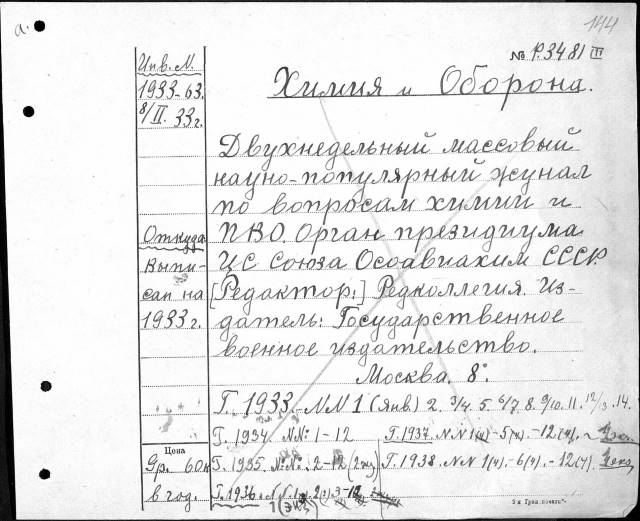 a.
144
№ Р.3481 III
Химия и Оборона.
Инв. N.
1933-63.
8/II. 33 г.
Двухнедельный массовый
науно-популярный жунал
по вопросам химии и
ПВО. Орган президиума
ЦС Союза Осоавиахим СССР.
[Редактор:] Редколлегия. Из-
датель: Государственное
военное издательство.
Москва. 8°.
Откуда
выпи-
сан на
1933 г.
Г. 1933.-NN 1 (Янв) 2. 3/4. 5. 6/7. 8. 9/10. 11. 12/13. 14.
Г. 1934. N.N: 1-12
Г. 1935. N:N: 1-2-12 (2 экз)
Г. 1936.
Г. 1937. N.N 1(4) - 5(4). - 12(4).
Г. 1938. N.N 1(4). - 6(4). - 12(4).
Цена
Gр. 60к
в год.